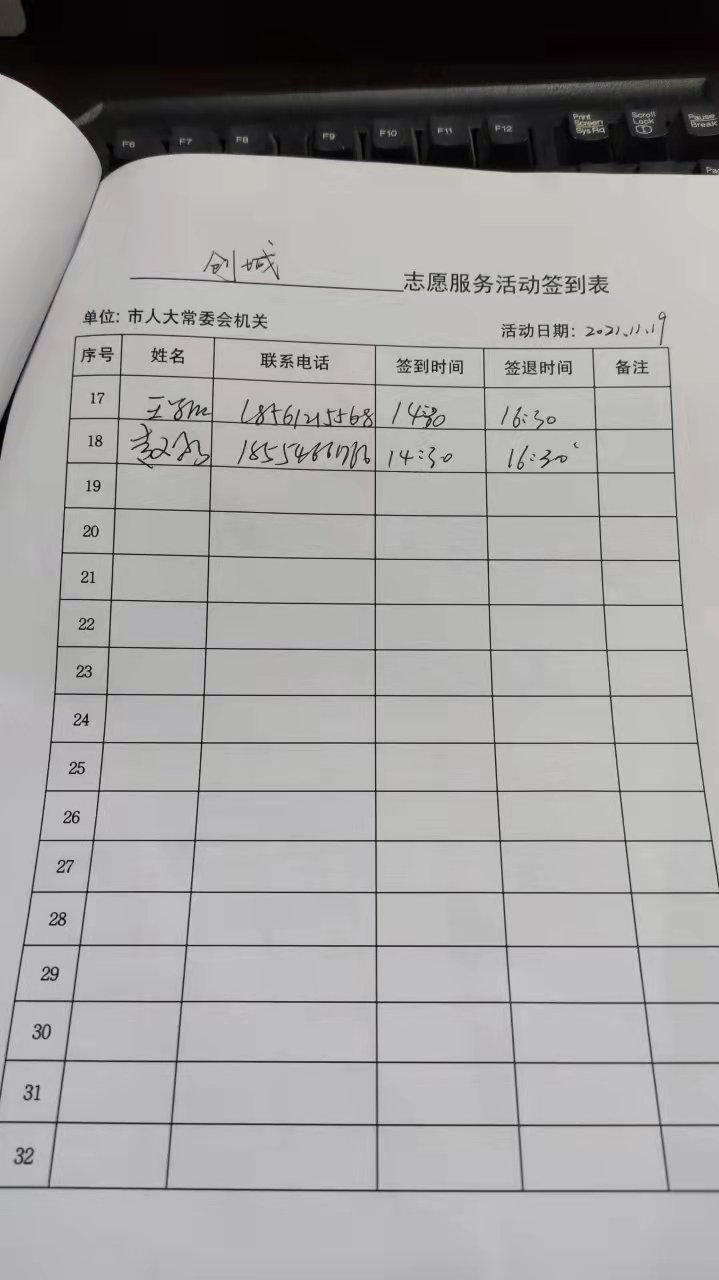 F6 F7 F8 F9 F10 F11 F12 Print Screen SysRq Scroll Lock Pause Break
创城 志愿服务活动签到表
单位: 市人大常委会机关 活动日期: 2021.11.19
序号 姓名 联系电话 签到时间 签退时间 备注
17 王 18561215568 14:30 16:30
18 14:30 16:30
19
20
21
22
23
24
25
26
27
28
29
30
31
32